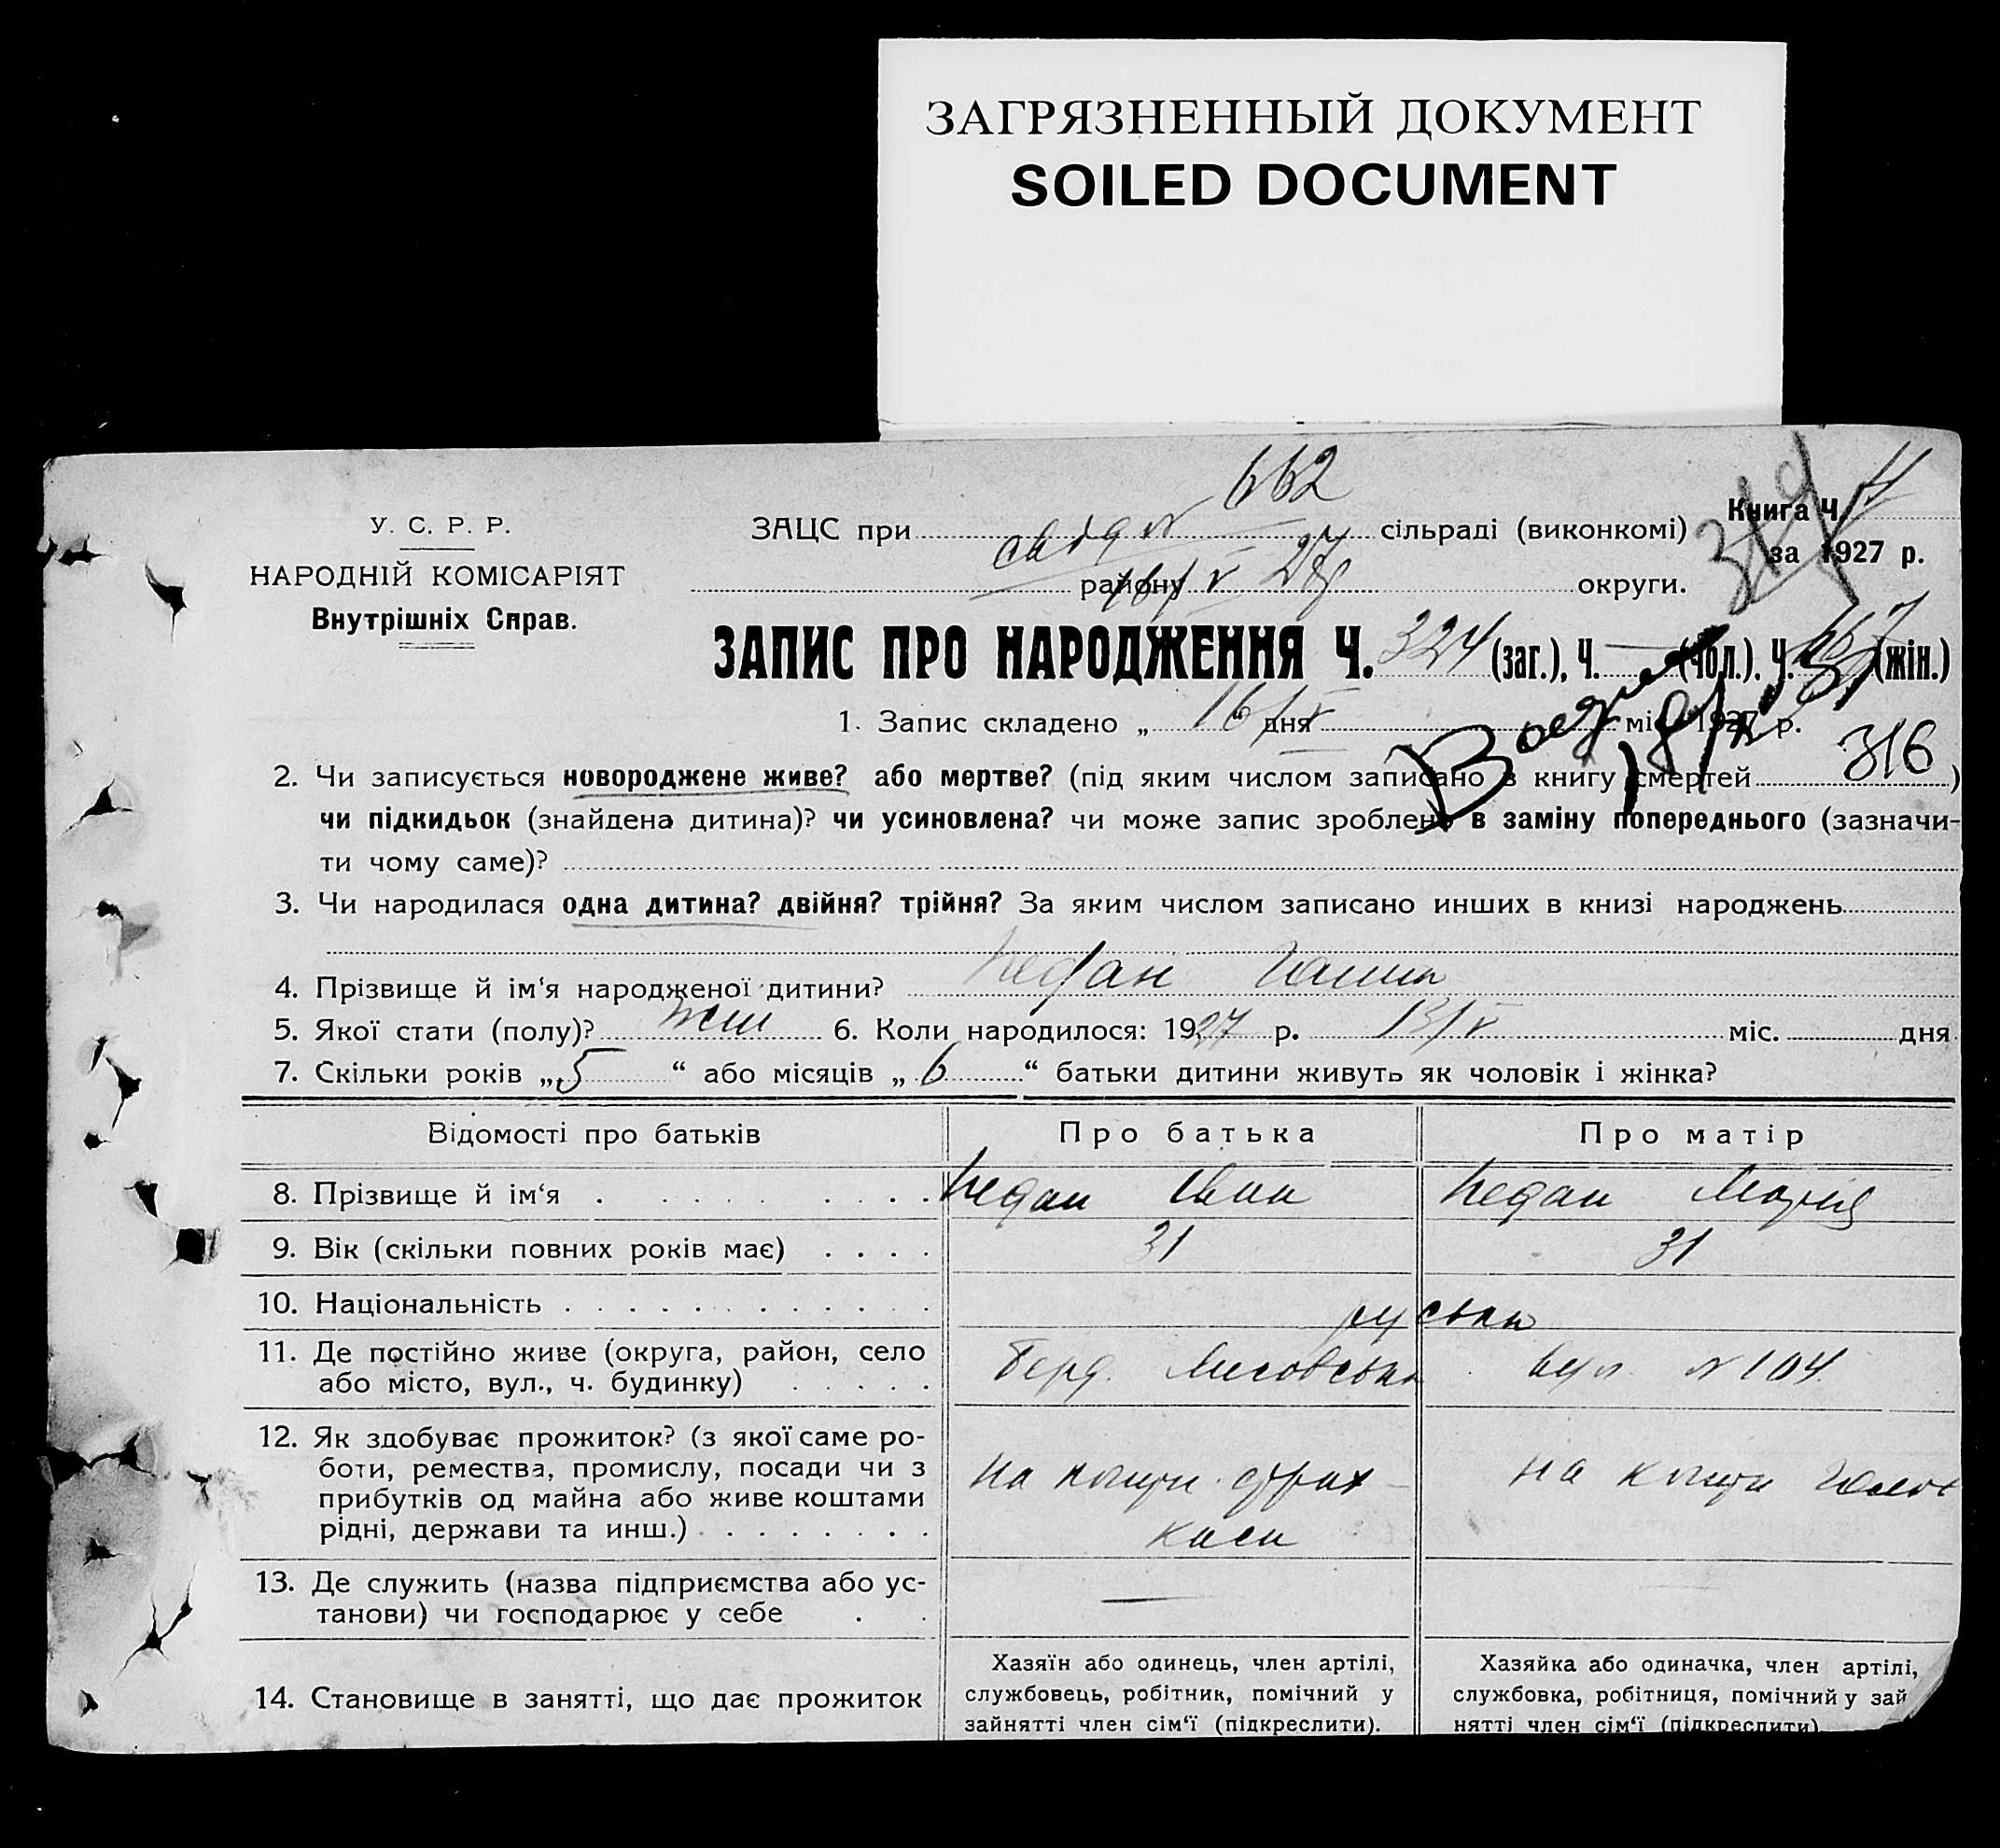 ЗАГРЯЗНЕННЫЙ ДОКУМЕНТ
SOILED DOCUMENT
662
У. С. Р. Р.
НАРОДНІЙ КОМІСАРІЯТ
Внутрішніх Справ.
ЗАЦС при сільраді (виконкомі)
Книга Ч.
за 1927 р.
319
району округи.
16/V 27
ЗАПИС ПРО НАРОДЖЕННЯ Ч. 324 (заг.), Ч. — (чол.). Ч. (жін.)
1. Запис складено „ 16/V “ дня міс. 1927 р.
2. Чи записується новороджене живе? або мертве? (під яким числом записано в книгу смертей 316 )
чи підкидьок (знайдена дитина)? чи усиновлена? чи може запис зроблено в заміну попереднього (зазначи-
ти чому саме)?
3. Чи народилася одна дитина? двійня? трійня? За яким числом записано инших в книзі народжень
4. Прізвище й ім‘я народженої дитини? Кедан Ганна
5. Якої стати (полу)? жін 6. Коли народилося: 1927 р. 13/V міс. дня
7. Скільки років „ 5 “ або місяців „ 6 “ батьки дитини живуть як чоловік і жінка?
Відомості про батьків Про батька Про матір
8. Прізвище й ім‘я Кедан Іван Кедан Марія
9. Вік (скільки повних років має) 31 31
10. Національність руськи
11. Де постійно живе (округа, район, село
або місто, вул., ч. будинку) Берд. Лисовська вул. № 104
12. Як здобуває прожиток? (з якої саме ро-
боти, ремества, промислу, посади чи з
прибутків од майна або живе коштами
рідні, держави та инш.) на кошти страх каси на кошти
13. Де служить (назва підприємства або ус-
танови) чи господарює у себе — —
14. Становище в занятті, що дає прожиток
Хазяїн або одинець, член артілі,
службовець, робітник, помічний у
зайнятті член сім‘ї (підкреслити).
Хазяйка або одиначка, член артілі,
службовка, робітниця, помічний у зай
нятті член сім‘ї (підкреслити)